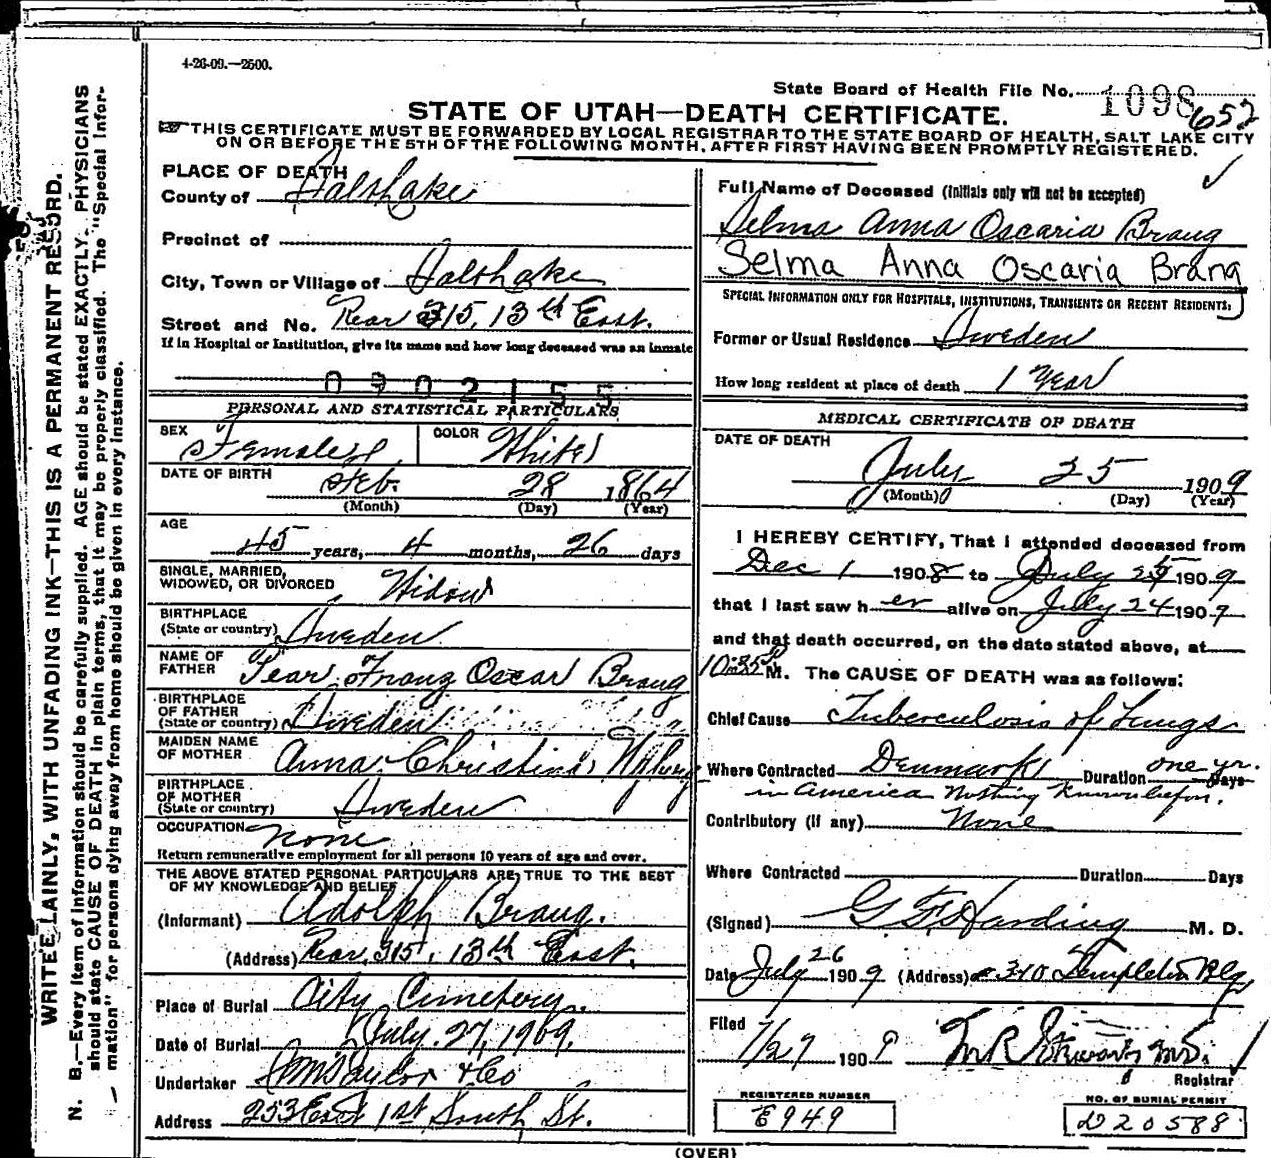 4-26-09.—2500.
State Board of Health File No. 1098
652
STATE OF UTAH—DEATH CERTIFICATE.
THIS CERTIFICATE MUST BE FORWARDED BY LOCAL REGISTRAR TO THE STATE BOARD OF HEALTH, SALT LAKE CITY
ON OR BEFORE THE 5TH OF THE FOLLOWING MONTH, AFTER FIRST HAVING BEEN PROMPTLY REGISTERED.
WRITE PLAINLY, WITH UNFADING INK—THIS IS A PERMANENT RECORD.
N. B.—Every item of information should be carefully supplied. AGE should be stated EXACTLY. PHYSICIANS
should state CAUSE OF DEATH in plain terms, that it may be properly classified. The "Special Infor-
mation" for persons dying away from home should be given in every instance.
PLACE OF DEATH
County of Salt Lake
Precinct of
City, Town or Village of Salt Lake
Street and No. Rear 315, 13th East.
If in Hospital or Institution, give its name and how long deceased was an inmate
0902155
PERSONAL AND STATISTICAL PARTICULARS
SEX Female COLOR White
DATE OF BIRTH Feb. 28 1864
(Month) (Day) (Year)
AGE
45 years, 4 months, 26 days
SINGLE, MARRIED,
WIDOWED, OR DIVORCED Widow
BIRTHPLACE
(State or country) Sweden
NAME OF
FATHER Pear Franz Oscar Braug
BIRTHPLACE
OF FATHER
(State or country) Sweden
MAIDEN NAME
OF MOTHER Anna Christina
BIRTHPLACE
OF MOTHER
(State or country) Sweden
OCCUPATION none
Return remunerative employment for all persons 10 years of age and over.
THE ABOVE STATED PERSONAL PARTICULARS ARE TRUE TO THE BEST
OF MY KNOWLEDGE AND BELIEF
(Informant) Adolph Braug.
(Address) Rear, 315, 13th East.
Place of Burial City Cemetery.
Date of Burial July. 27, 1909.
Undertaker Taylor & Co
Address 253 East 1st South St.
Full Name of Deceased (Initials only will not be accepted)
Selma Anna Oscaria Braug
Selma Anna Oscaria Brang
SPECIAL INFORMATION ONLY FOR HOSPITALS, INSTITUTIONS, TRANSIENTS OR RECENT RESIDENTS:
Former or Usual Residence Sweden
How long resident at place of death 1 Year
MEDICAL CERTIFICATE OF DEATH
DATE OF DEATH
July 25 1909
(Month) (Day) (Year)
I HEREBY CERTIFY, That I attended deceased from
Dec 1 1908 to July 25 1909
that I last saw her alive on July 24 1909
and that death occurred, on the date stated above, at
10:35 P M. The CAUSE OF DEATH was as follows:
Chief Cause Tuberculosis of Lungs
Where Contracted Denmark Duration one yr. Days
in America Nothing Known befor.
Contributory (if any) None
Where Contracted Duration Days
(Signed) G F Harding M. D.
Date July 26 1909 (Address) 310 Templeton Blg
Filed
7/27 1909 M R Stewart M.D.
Registrar
REGISTERED NUMBER
E949
NO. OF BURIAL PERMIT
D20588
(OVER)